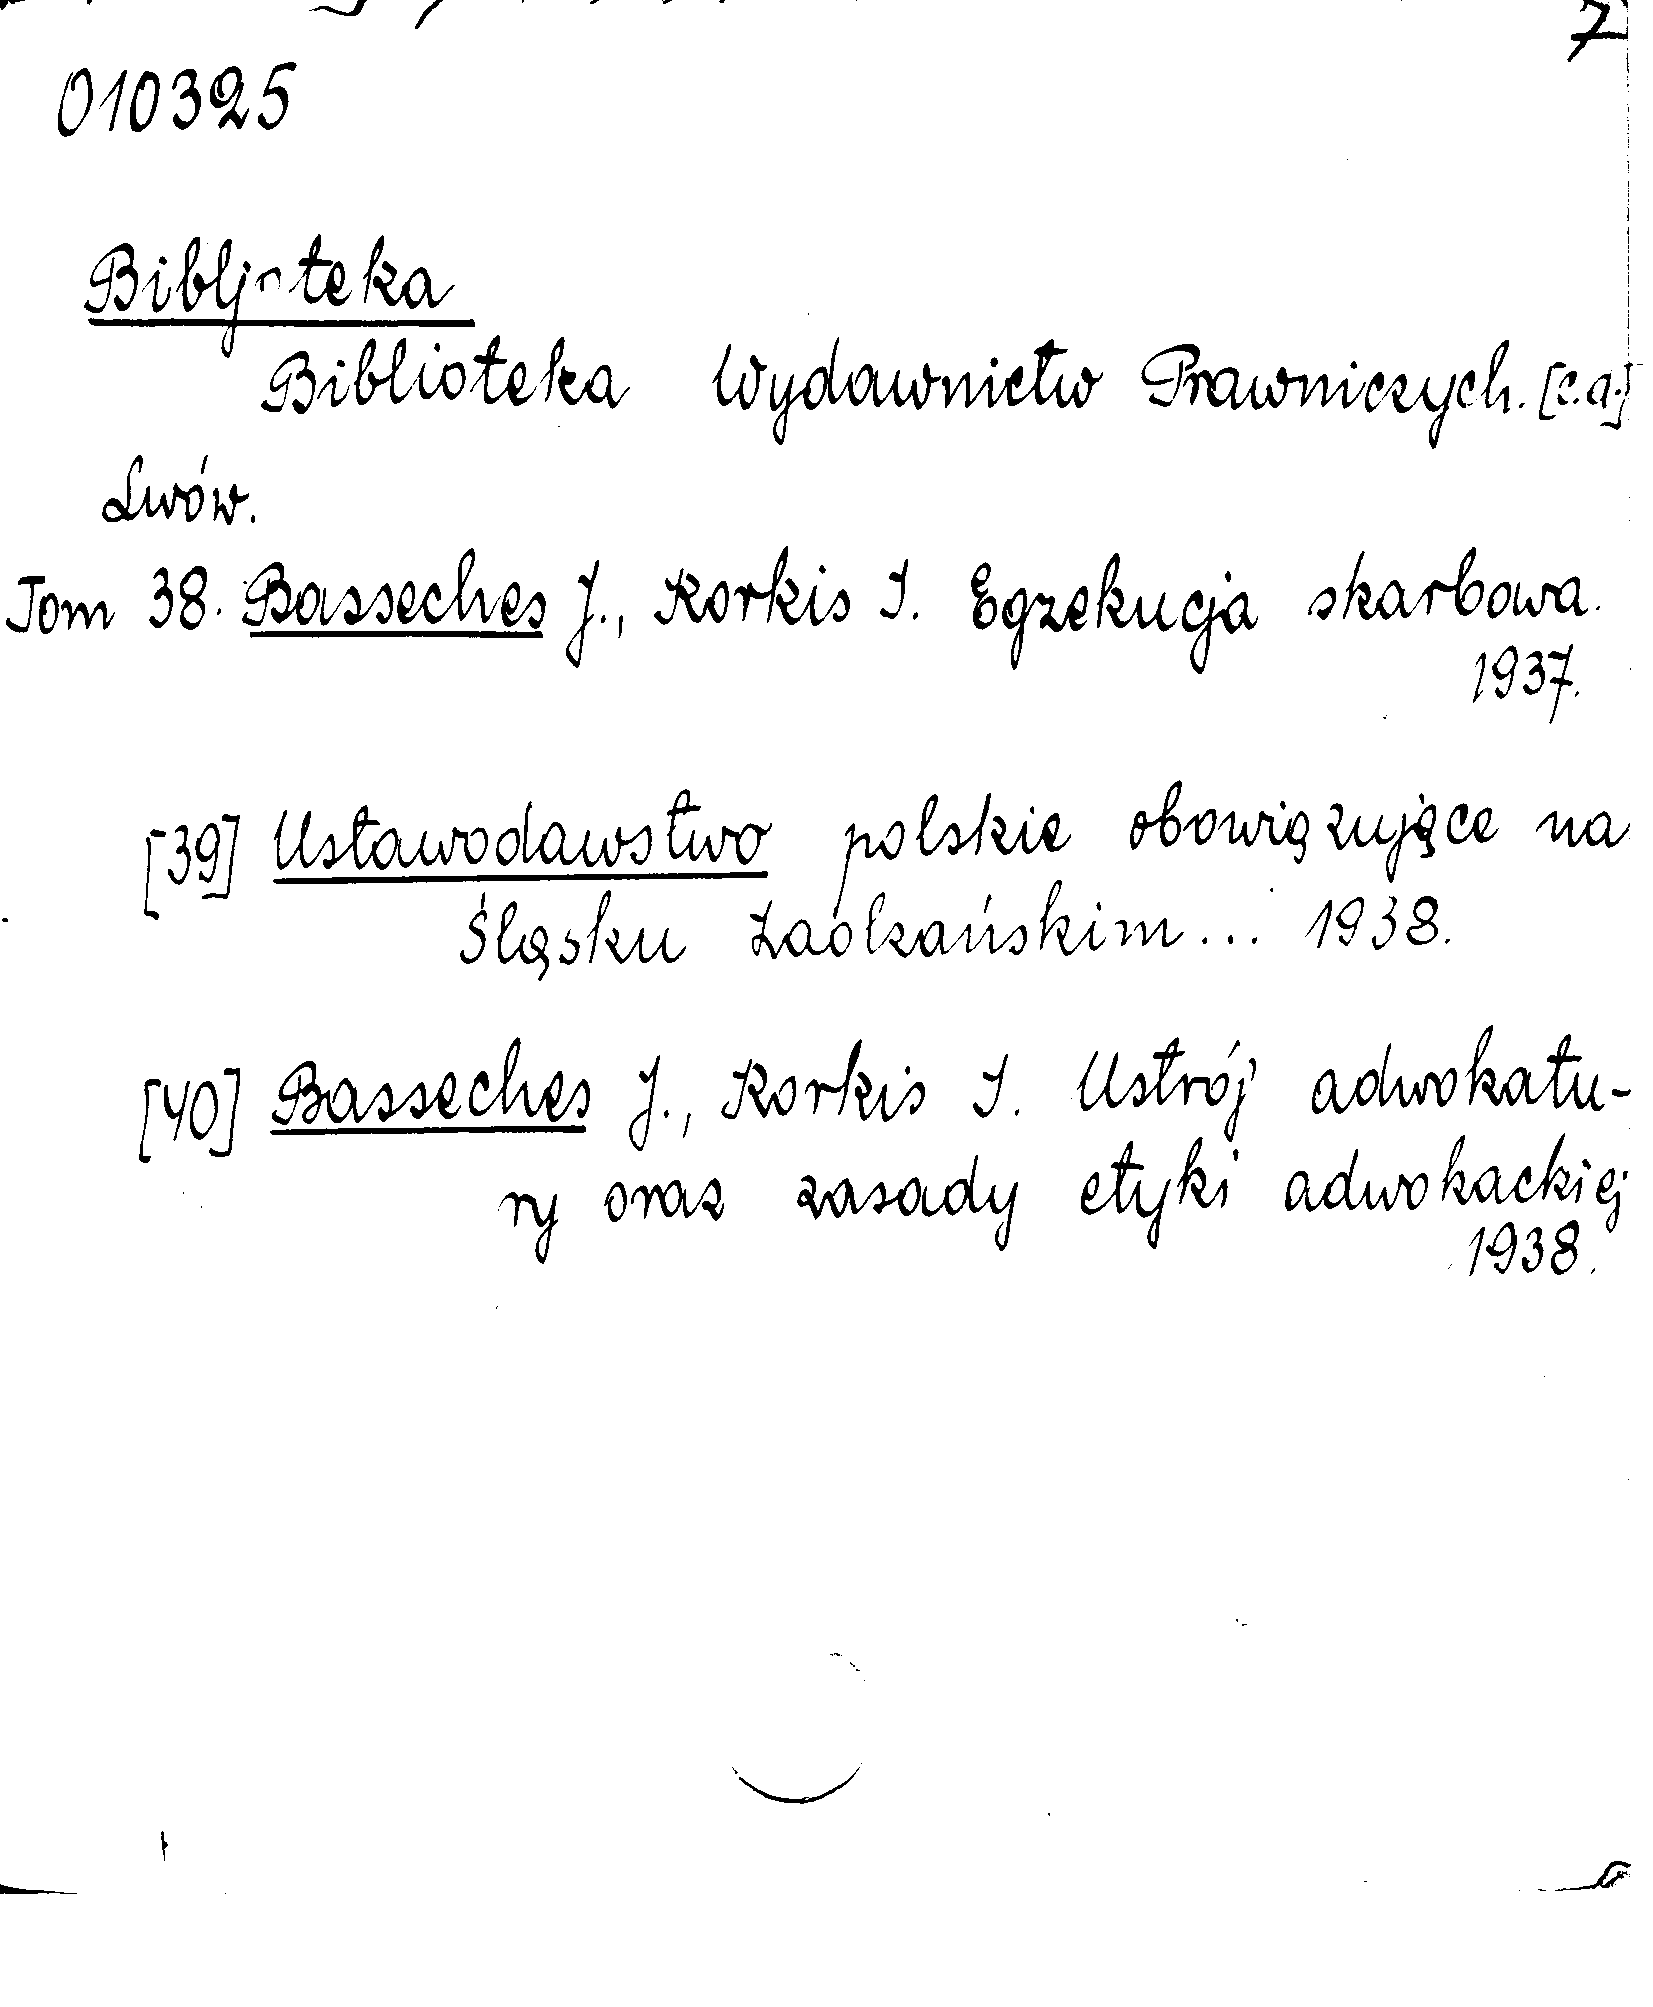 7
010325
Bibljoteka
Biblioteka Wydawnictw Prawniczych. [c.d.]
Lwów.
Tom 38. Basseches J., Korkis I. Egzekucja skarbowa.
1937.
[39] Ustawodawstwo polskie obowiązujące na
Śląsku Zaolzańskim... 1938.
[40] Basseches J., Korkis I. Ustrój adwokatu-
ry oraz zasady etyki adwokackiej
1938.